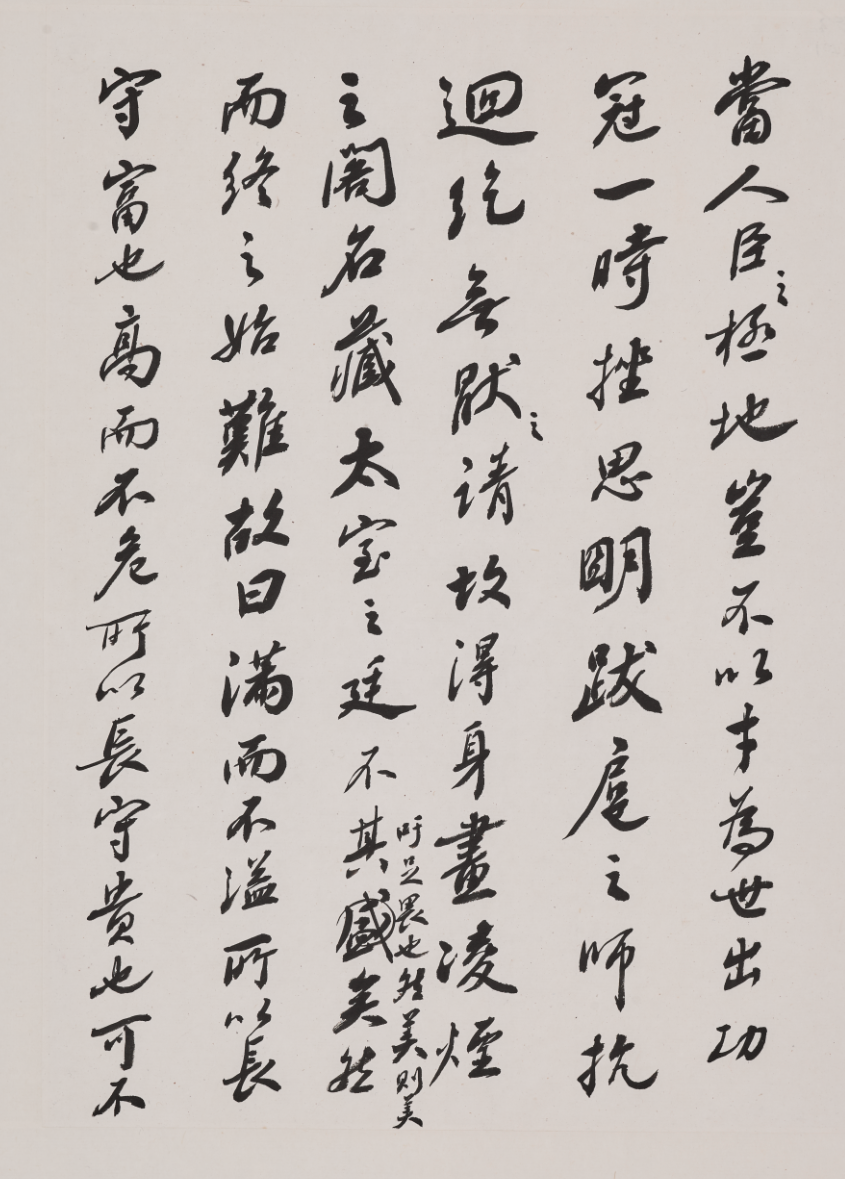 當人臣之極地豈不以才為世出功
冠一時挫思明跋扈之師抗
迴紇無猒之請故得身畫凌煙
之閣名藏太室之廷不其盛矣然
吁足畏也然美則美
而終之始難故曰滿而不溢所以長
守富也高而不危所以長守貴也可不